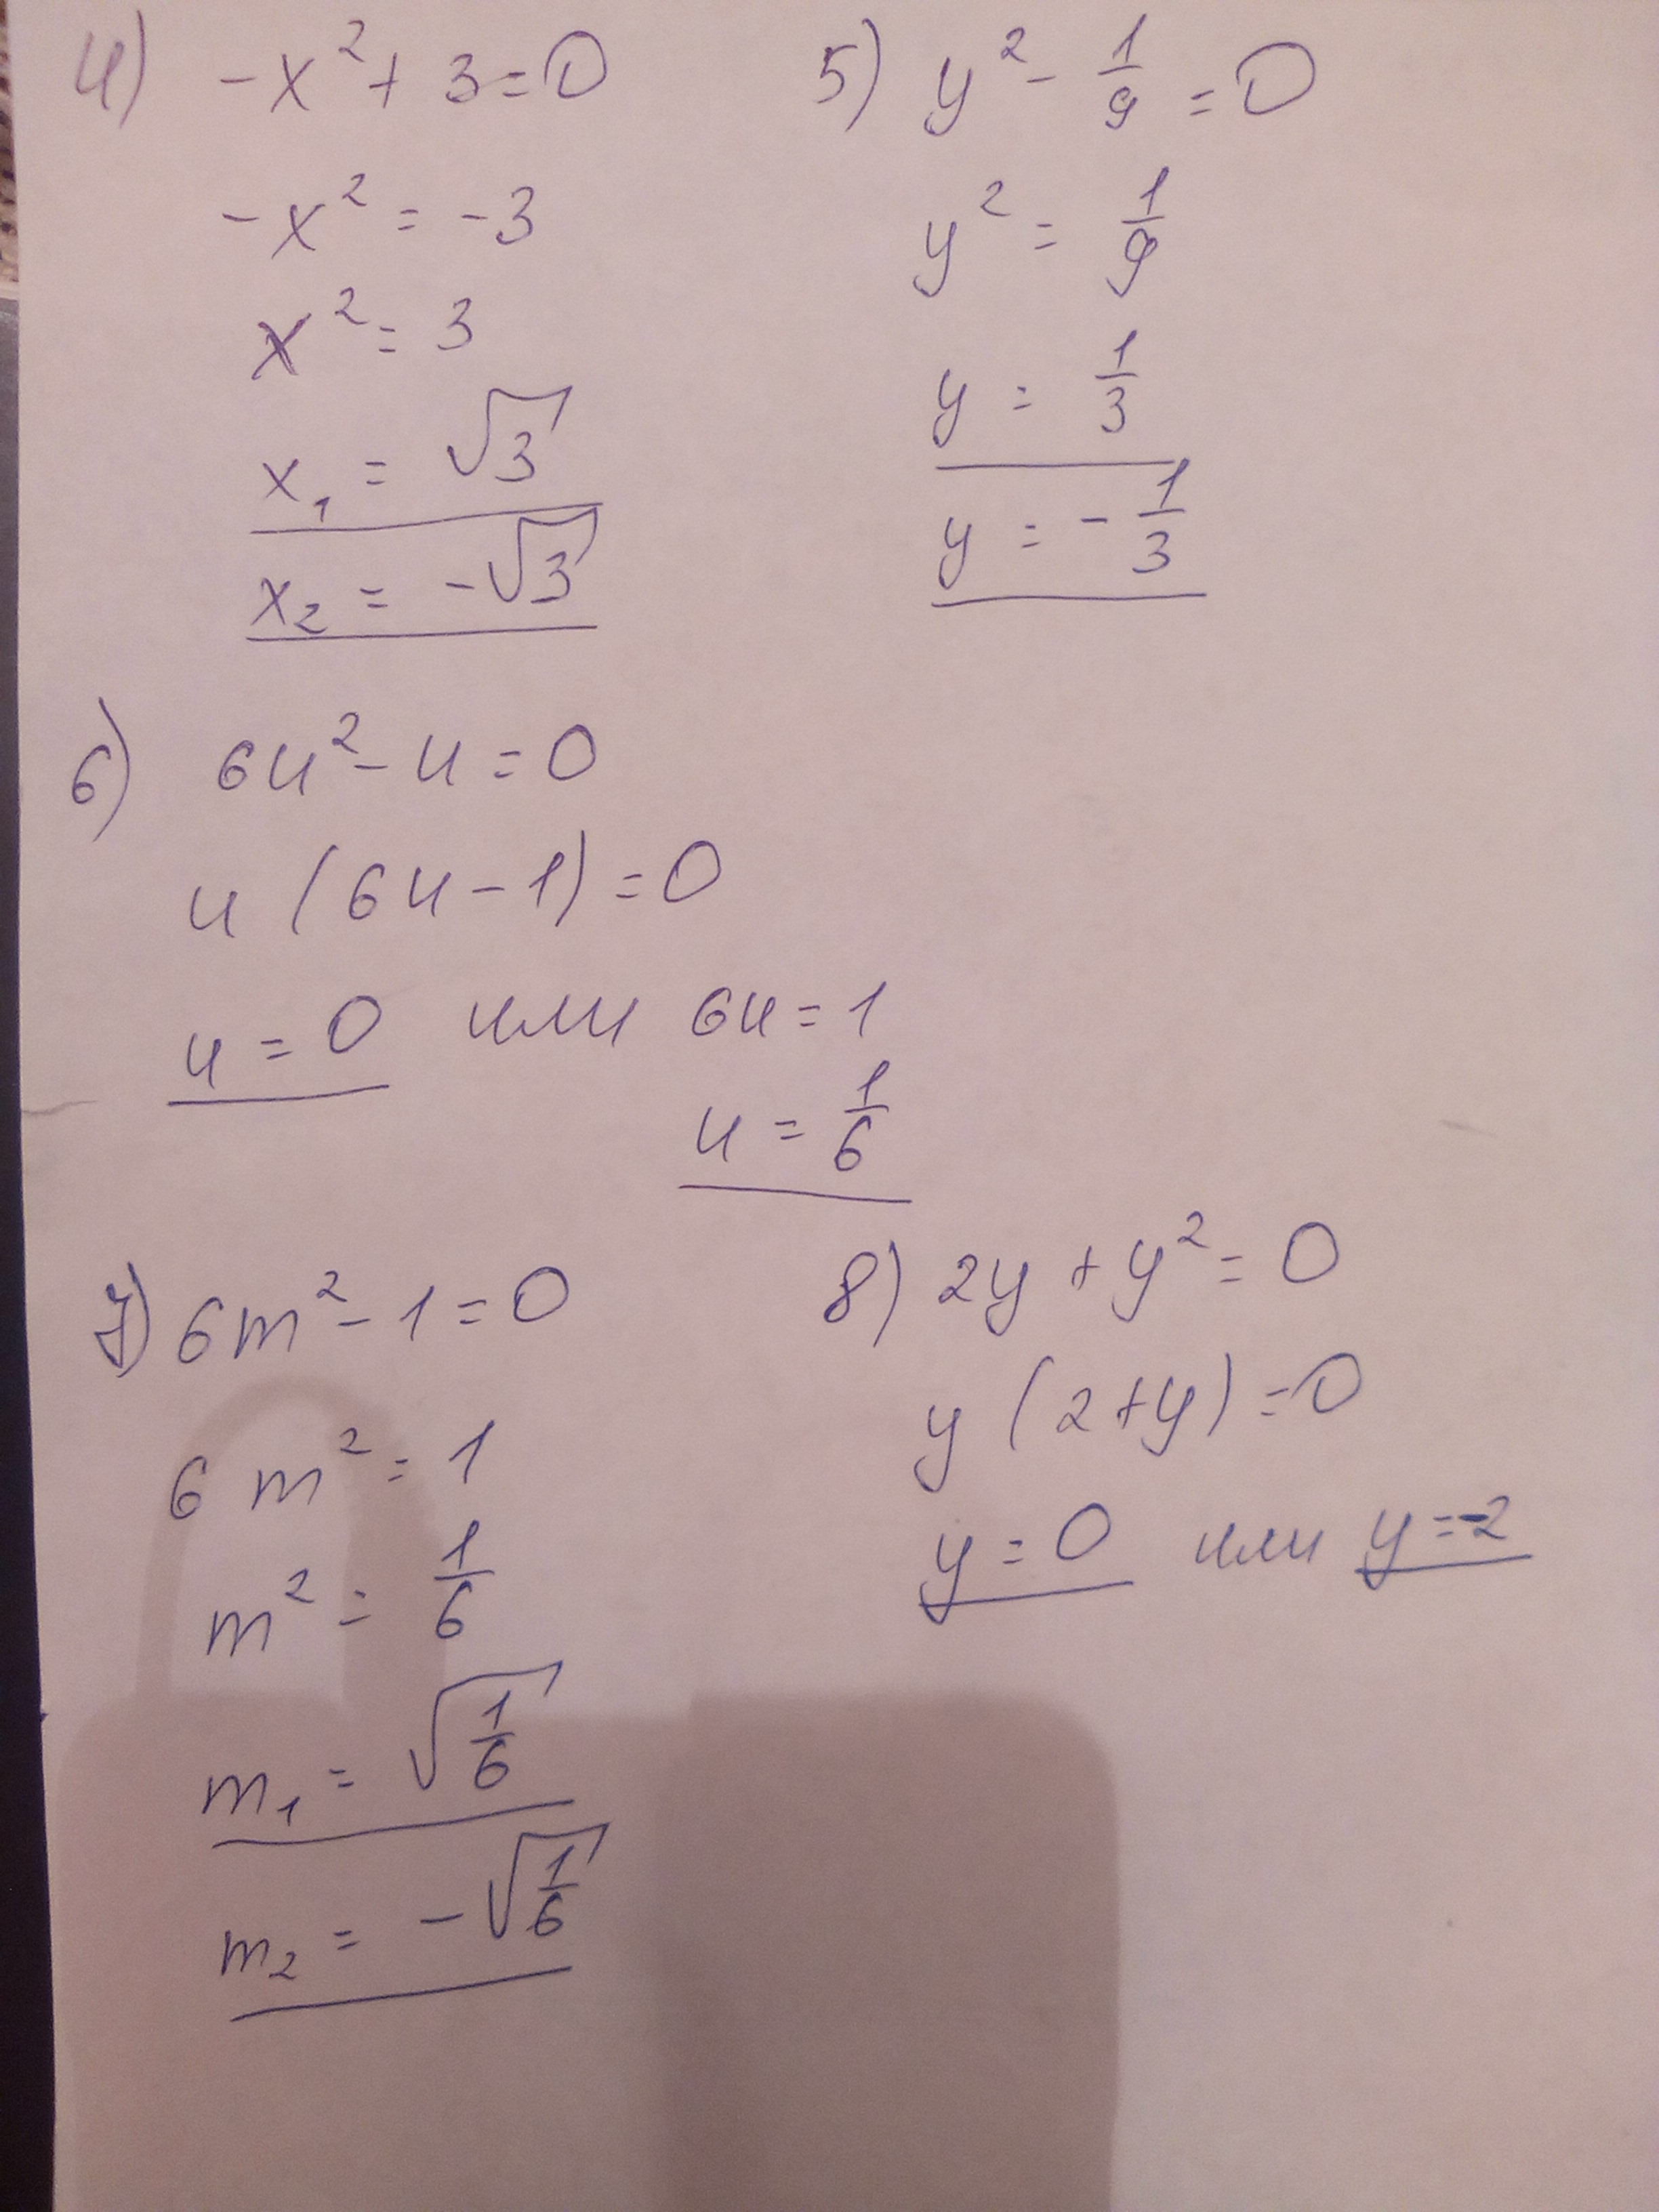 4) -x² + 3 = 0
-x² = -3
x² = 3
x₁ = √3
x₂ = -√3
5) y² - 1/9 = 0
y² = 1/9
y = 1/3
y = -1/3
6) 6u² - u = 0
u (6u - 1) = 0
u = 0 или 6u = 1
u = 1/6
7) 6m² - 1 = 0
6 m² = 1
m² = 1/6
m₁ = √1/6
m₂ = -√1/6
8) 2y + y² = 0
y (2 + y) = 0
y = 0 или y = -2